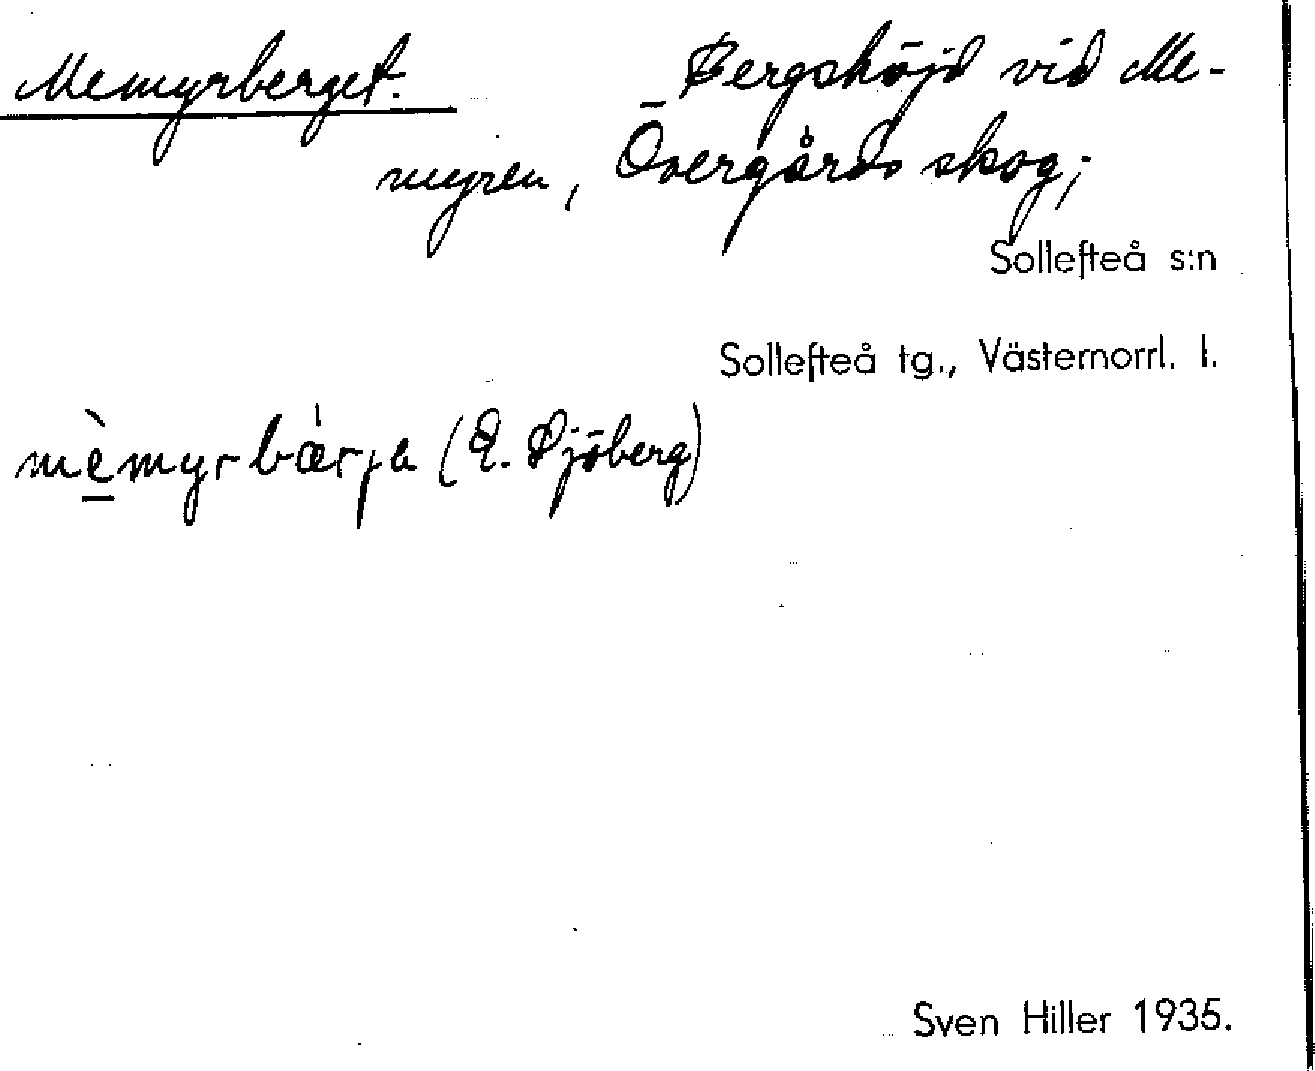 Memyrberget. Bergshöjd vid Me-
myren, Övergårds skog;
Sollefteå s:n
Sollefteå tg., Västernorrl. l.
mèmyrbær̀ja (E. Sjöberg)
Sven Hiller 1935.